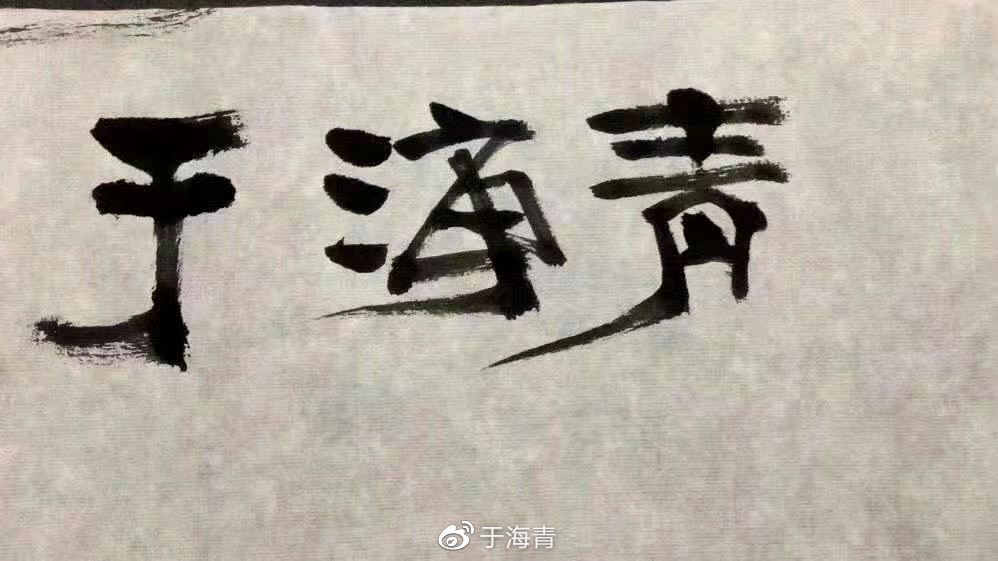 于海青
于海青